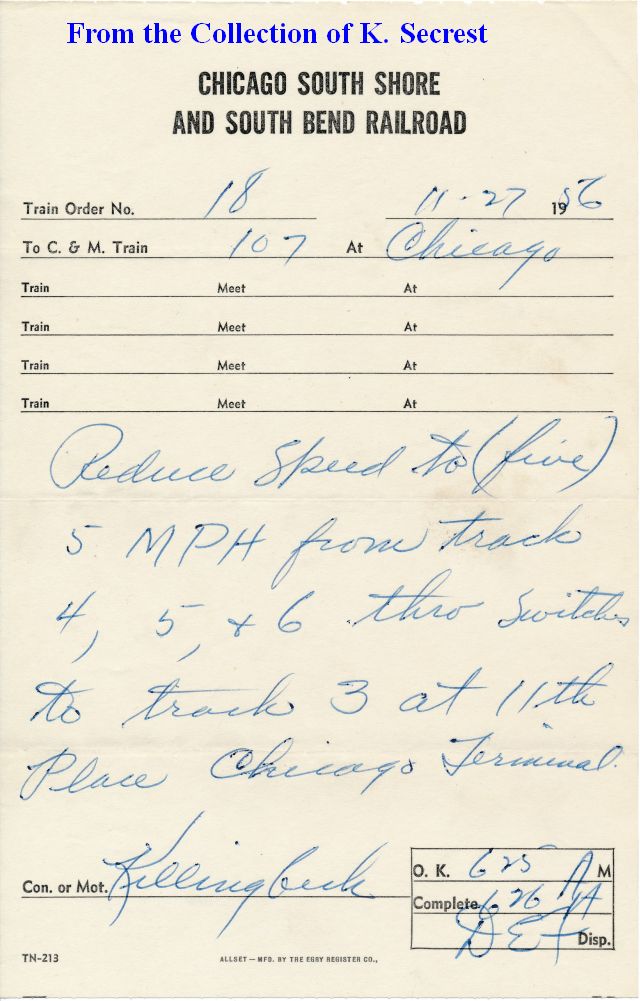 From the Collection of K. Secrest
CHICAGO SOUTH SHORE
AND SOUTH BEND RAILROAD
Train Order No. 18 11-27 1956
To C. & M. Train 107 At Chicago
Train Meet At
Train Meet At
Train Meet At
Train Meet At
Reduce Speed to (five)
5 MPH from track
4, 5, & 6 thro Switches
to track 3 at 11th
Place Chicago Terminal.
Con. or Mot. Killingbeck
O. K. 625 A M
Complete 626 A
Disp.
TN-213 ALLSET — MFD. BY THE EGRY REGISTER CO.,